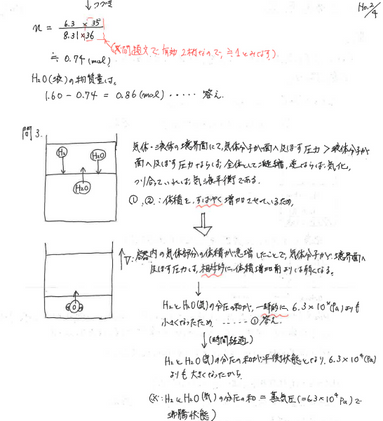 ↓つづき
No.2/4
n = 6.3 × 35 / 8.31 × 36
(質問趣文で、有効2桁なので、≒1とみなす)
≒ 0.74 (mol)
H₂O(液)の物質量は、
1.60 − 0.74 = 0.86 (mol) ····· 答え.
問3.
気体・液体の境界面にて、気体分子が面へ及ぼす圧力 > 液体分子が
面へ及ぼす圧力ならば、全体として凝縮、逆ならば気化。
つり合っていれば気液平衡である。
H₂
H₂O
H₂O
①,②: 体積を、すばやく増加させているため、
容器内の気体部分の体積が急増したことで、気体分子が境界面へ
及ぼす圧力は、相対的に体積増加前よりは弱くなる。
H₂とH₂O(気)の分圧の和が、一時的に、6.3×10⁴(Pa)よりも
小さくなったため ····· ①答え.
↓(時間経過)
H₂とH₂O(気)の分圧の和が平衡状態となり、6.3×10⁴(Pa)
よりも大きくなったから
(※: H₂とH₂O(気)の分圧の和 = 蒸気圧(=6.3×10⁴Pa)で
沸騰状態)